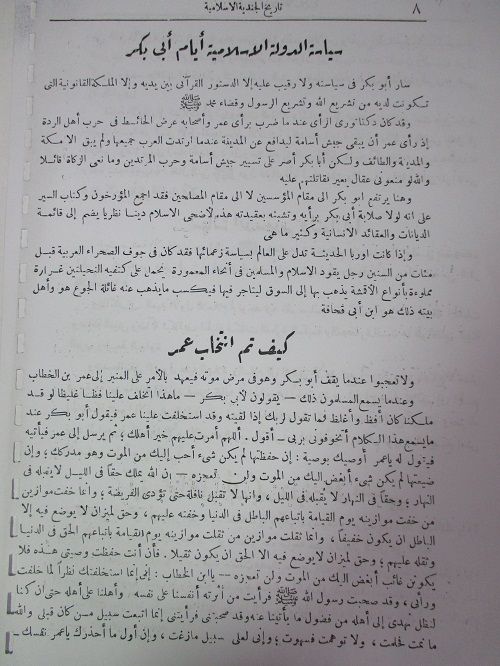 تاريخ الجندية الاسلامية
٨
سياسة الدولة الاسلامية أيام أبى بكر
سار أبو بكر فى سياسته ولا رقيب عليه إلا الدستور القرآنى بين يديه وإلا الملكة القانونية التى
تكونت لديه من تشريع الله وتشريع الرسول وقضاء محمد ﷺ
وقد كان دكتاتورى الرأى عند ما ضرب برأى عمر وأصحابه عرض الحائط فى حرب أهل الردة
إذ رأى عمر أن يبقى جيش أسامة ليدافع عن المدينة عندما ارتدت العرب جميعها ولم يبق الا مكة
والمدينة والطائف ولكن أبا بكر أصر على تسيير جيش أسامة وحرب المرتدين وما نعى الزكاة قائلا
والله لو منعونى عقال بعير لقاتلتهم عليه
وهنا يرتفع ابو بكر الى مقام المؤسسين لا الى مقام المصلحين فقد اجمع المؤرخون وكتاب السير
على انه لولا صلابة أبى بكر برأيه وتشبثه بعقيدته هذه لاضحى الاسلام دينا نظريا يضم إلى قائمة
الديانات والعقائد الانسانية وكثير ما هى
وإذا كانت اوربا الحديثة تدل على العالم بسياسة زعمائها فقد كان فى جوف الصحراء العربية قبل
مئات من السنين رجل يقود الاسلام والمسلمين فى أنحاء المعمورة يحمل على كتفيه النحيلتين غرارة
مملوءة بأنواع الأقمشة يذهب بها إلى السوق ليتاجر فيها فيكسب ما يذهب عنه غائلة الجوع هو وأهل
بيته ذلك هو ابن أبى قحافة
كيف تم انتخاب عمر
ولا تعجبوا عندما يقف أبو بكر وهو فى مرض موته فيعهد بالأمر على المنبر إلى عمر بن الخطاب
وعندما يسمع المسلمون ذلك — يقولون لأبى بكر — ماهذا أتخلف علينا فظا غليظا لو قد
ملكنا كان أفظ وأغلظ فما تقول لربك إذا لقيته وقد استخلفت علينا عمر فيقول أبو بكر عند
ما يسمع هذا الكلام أتخوفونى بربى — أقول . أللهم أمرت عليهم خير أهلك ؛ ثم يرسل إلى عمر فيأتيه
فيقول له ياعمر أوصيك بوصية : إن حفظتها لم يكن شىء أحب إليك من الموت وهو مدركك ؛ وإن
ضيعتها لم يكن شىء أبغض اليك من الموت ولن تعجزه — إن الله عليك حقا فى الليل لا يقبله فى
النهار ؛ وحقا فى النهار لا يقبله فى الليل ، وانها لا تقبل نافلة حتى تؤدى الفريضة ، وانما خفت موازين
من خفت موازينه يوم القيامة باتباعهم الباطل فى الدنيا وخفته عليهم ، وحق لميزان لا يوضع فيه إلا
الباطل ان يكون خفيفا ، وانما ثقلت موازين من ثقلت موازينه يوم القيامة باتباعهم الحق فى الدنيا
وثقله عليهم ؛ وحق لميزان لا يوضع فيه الا الحق ان يكون ثقيلا . فأن أنت حفظت وصيتى هذه فلا
يكونن غائب أبغض اليك من الموت ولن تعجزه -- ياابن الخطاب : إنى إنما استخلفتك نظرا لما خلفت
ورأى ، وقد صحبت رسول الله ﷺ فرأيت من أثرته أنفسنا على نفسه وأهلنا على أهله حتى ان كنا
لنظل نهدى إلى أهله من فضول ما يأتينا عنه وقد صحبتنى فرأيتنى إنما اتبعت سبيل من كان قبلى والله
ما نمت فحلمت ، ولا توهمت فسهوت ؛ وإنى لعلى سبيل مازغت ، وإن أول ما أحذرك ياعمر نفسك